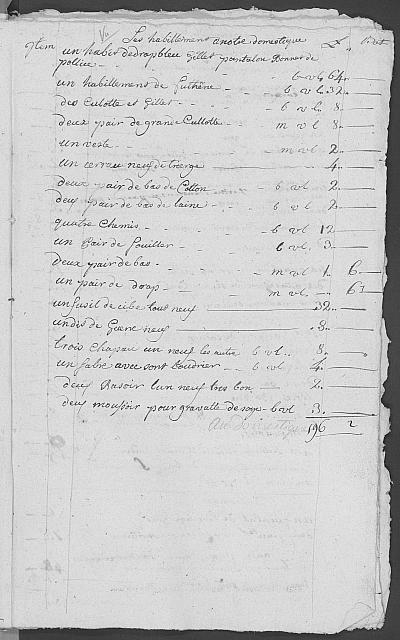 Les habillement a notre domestique
Item un habis de drap bleu Gillet pantalon Bonnet de
police - - b vl 64 -
un habillement de - b vl 32 -
des Culotte et Gilet - - b vl 8 -
deux pair de grande Cullotte - m vl 8 -
un veste - - m vl 2 -
un neuf de 4 -
deux pair de bas de Cotton - b vl 2 -
deux pair de bas de laine - b vl 2 -
quatre Chemis - - b vl 12 -
un pair de Soullier - b vl 3 -
deux pair de bas - m vl 1 6 -
un pair de drap - m vl - 6
un fusil de tous neuf 32 -
un dis de Guere neuf 8 -
trois Chapau un neuf les autre b vl 8 -
un sabre avec sont boudrier - b vl 4 -
deux Rasoir l'un neuf tres bon 2 -
deux moussoir pour gravatte de soye b vl 3 -
196 2